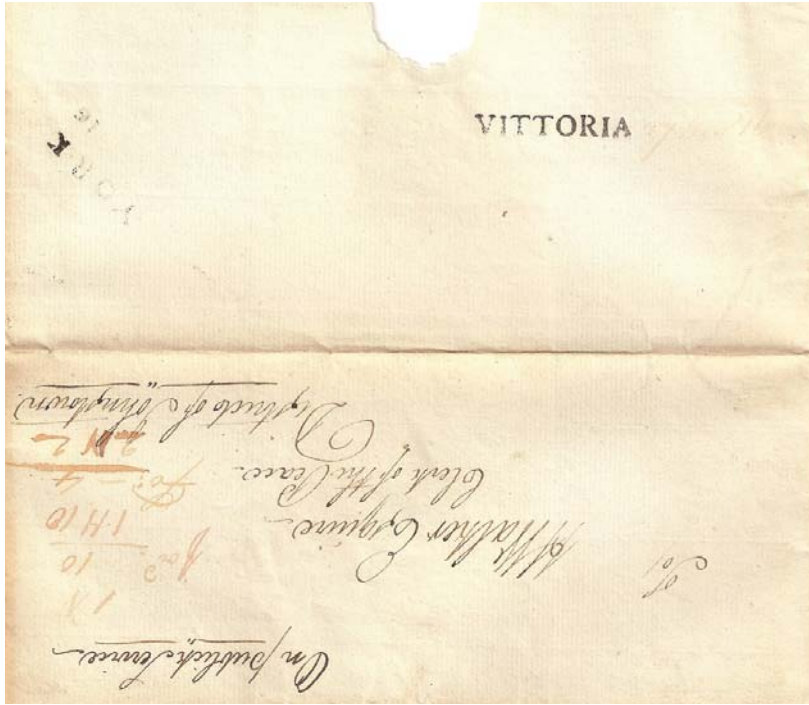 VITTORIA
YORK
16
On publick Service
To,
Walker Esquire
Clerk of the Peace
District of Johnstown
10
10